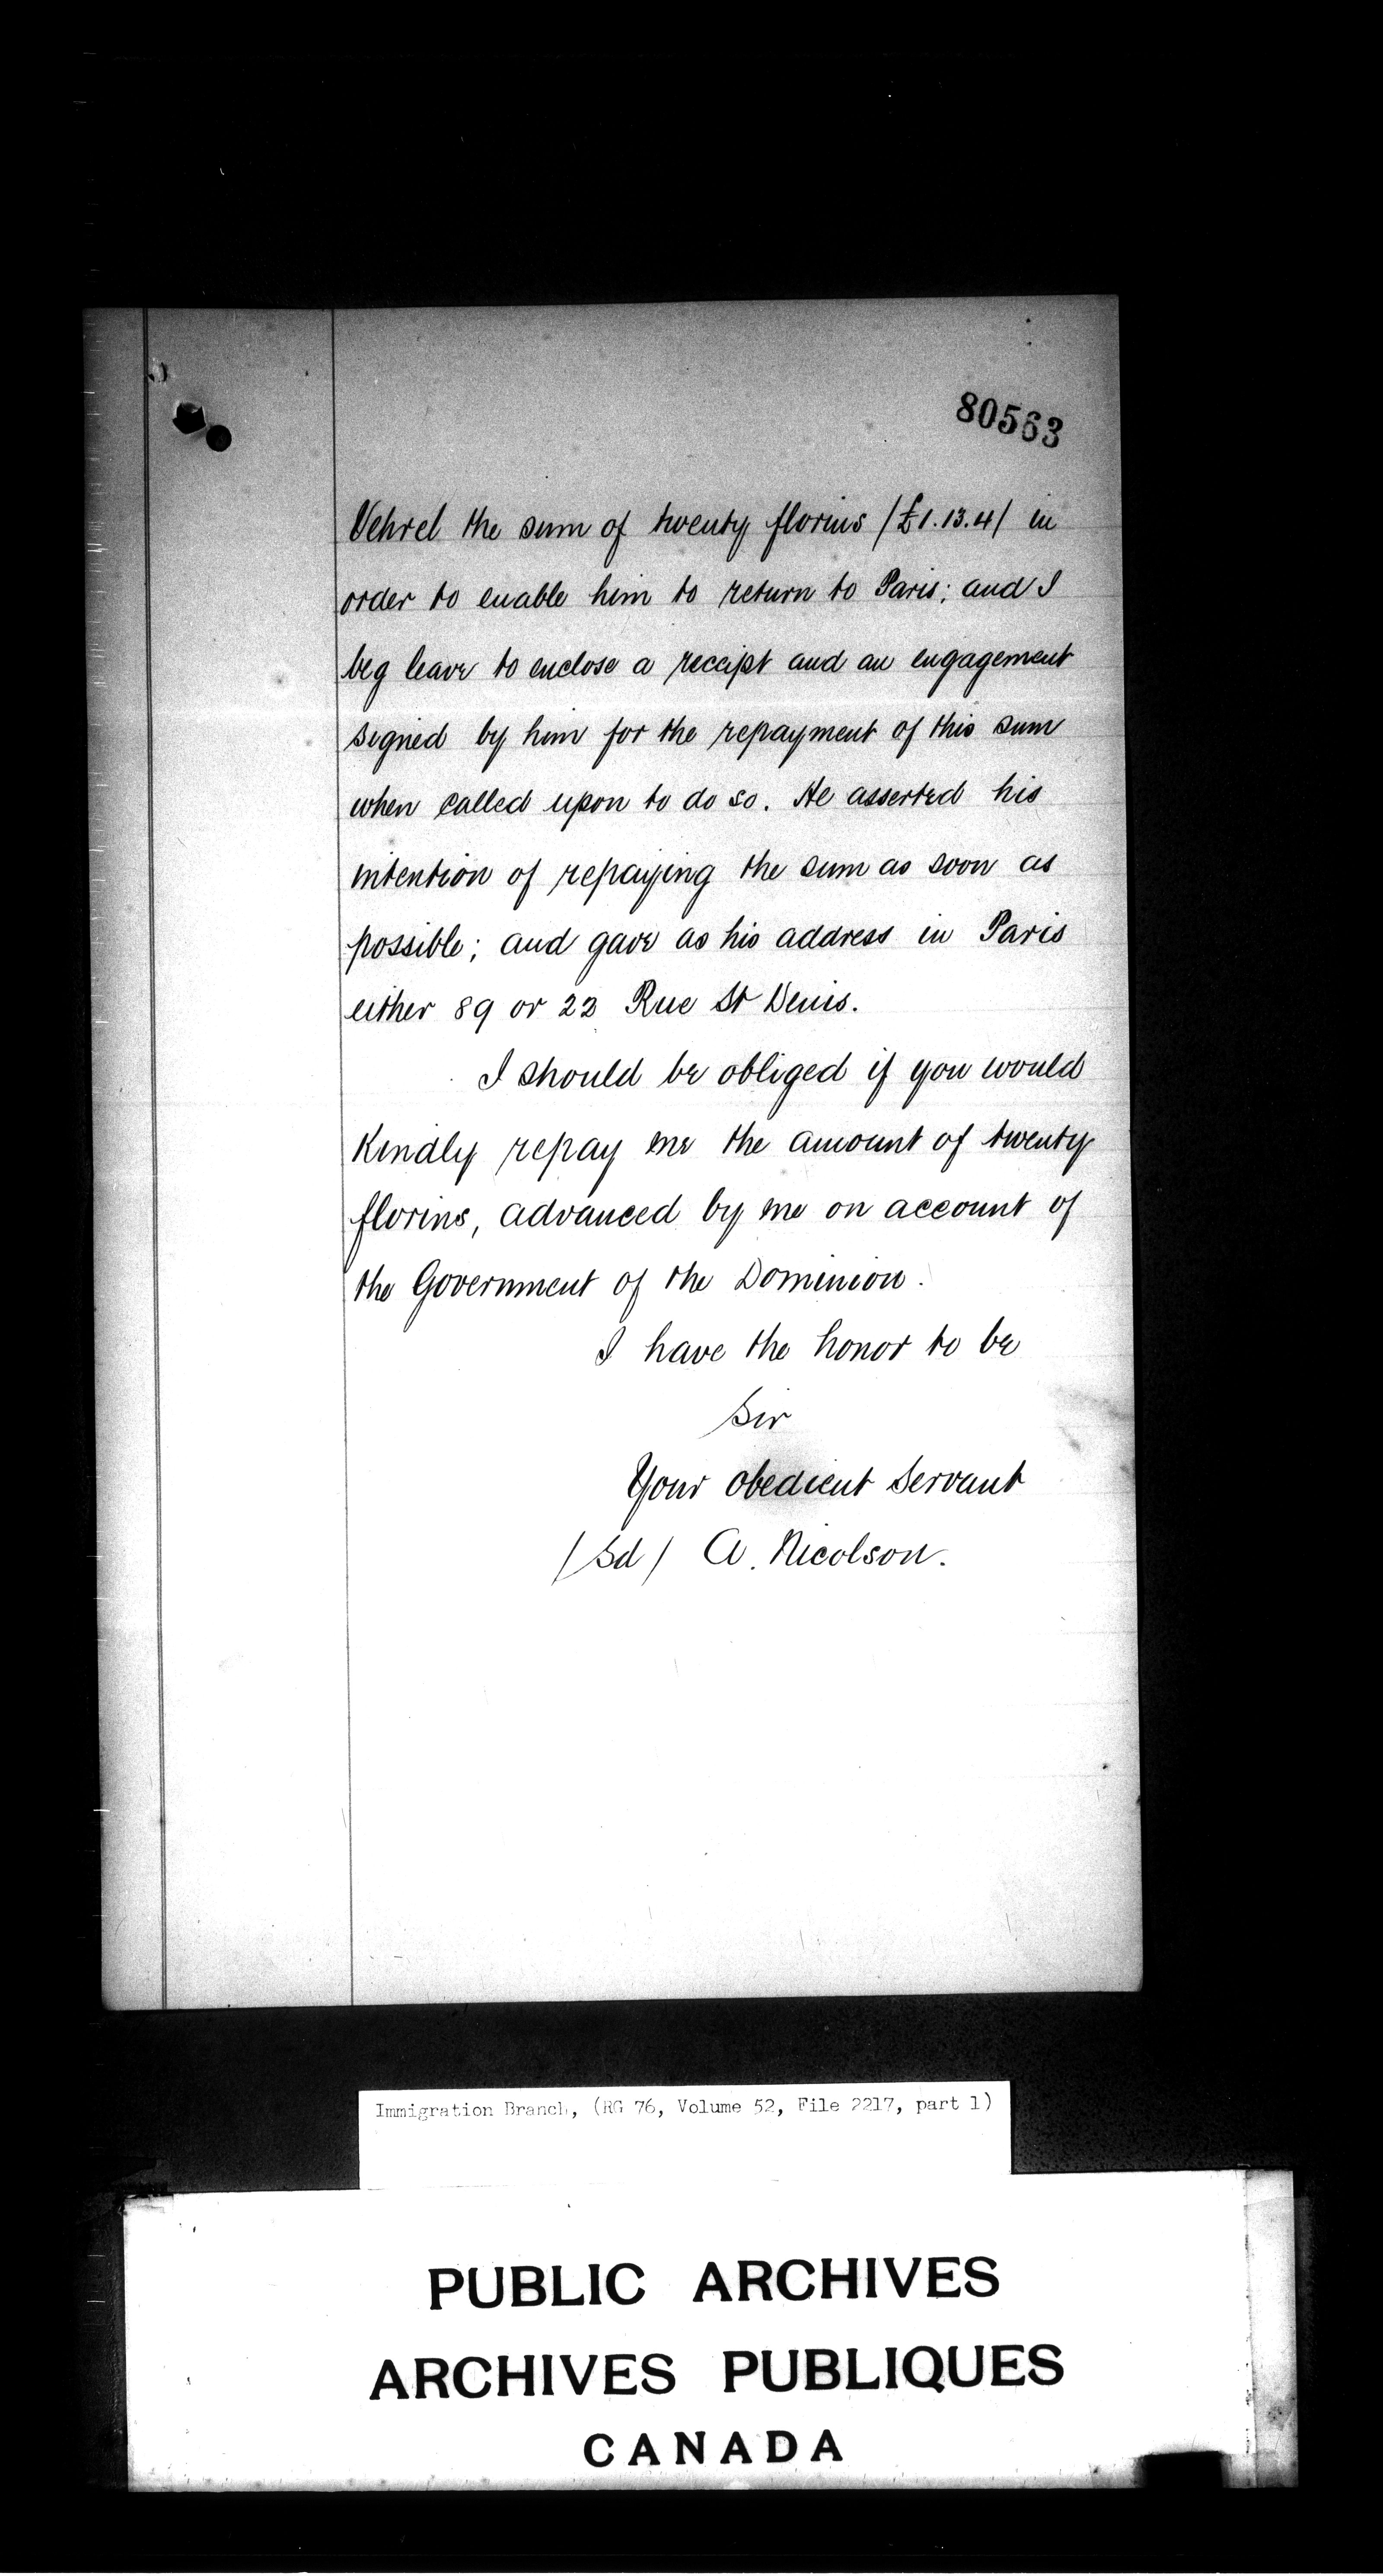 80563
Vehrel the sum of twenty florins /£1.13.4/ in
order to enable him to return to Paris; and I
beg leave to enclose a receipt and an engagement
signed by him for the repayment of this sum
when called upon to do so. He asserted his
intention of repaying the sum as soon as
possible; and gave as his address in Paris
either 89 or 22 Rue St Denis.
I should be obliged if you would
Kindly repay me the amount of twenty
florins, advanced by me on account of
the Government of the Dominion.
I have the honor to be
Sir
Your obedient Servant
/Sd/ A. Nicolson.
Immigration Branch, (RG 76, Volume 52, File 2217, part 1)
PUBLIC ARCHIVES
ARCHIVES PUBLIQUES
CANADA